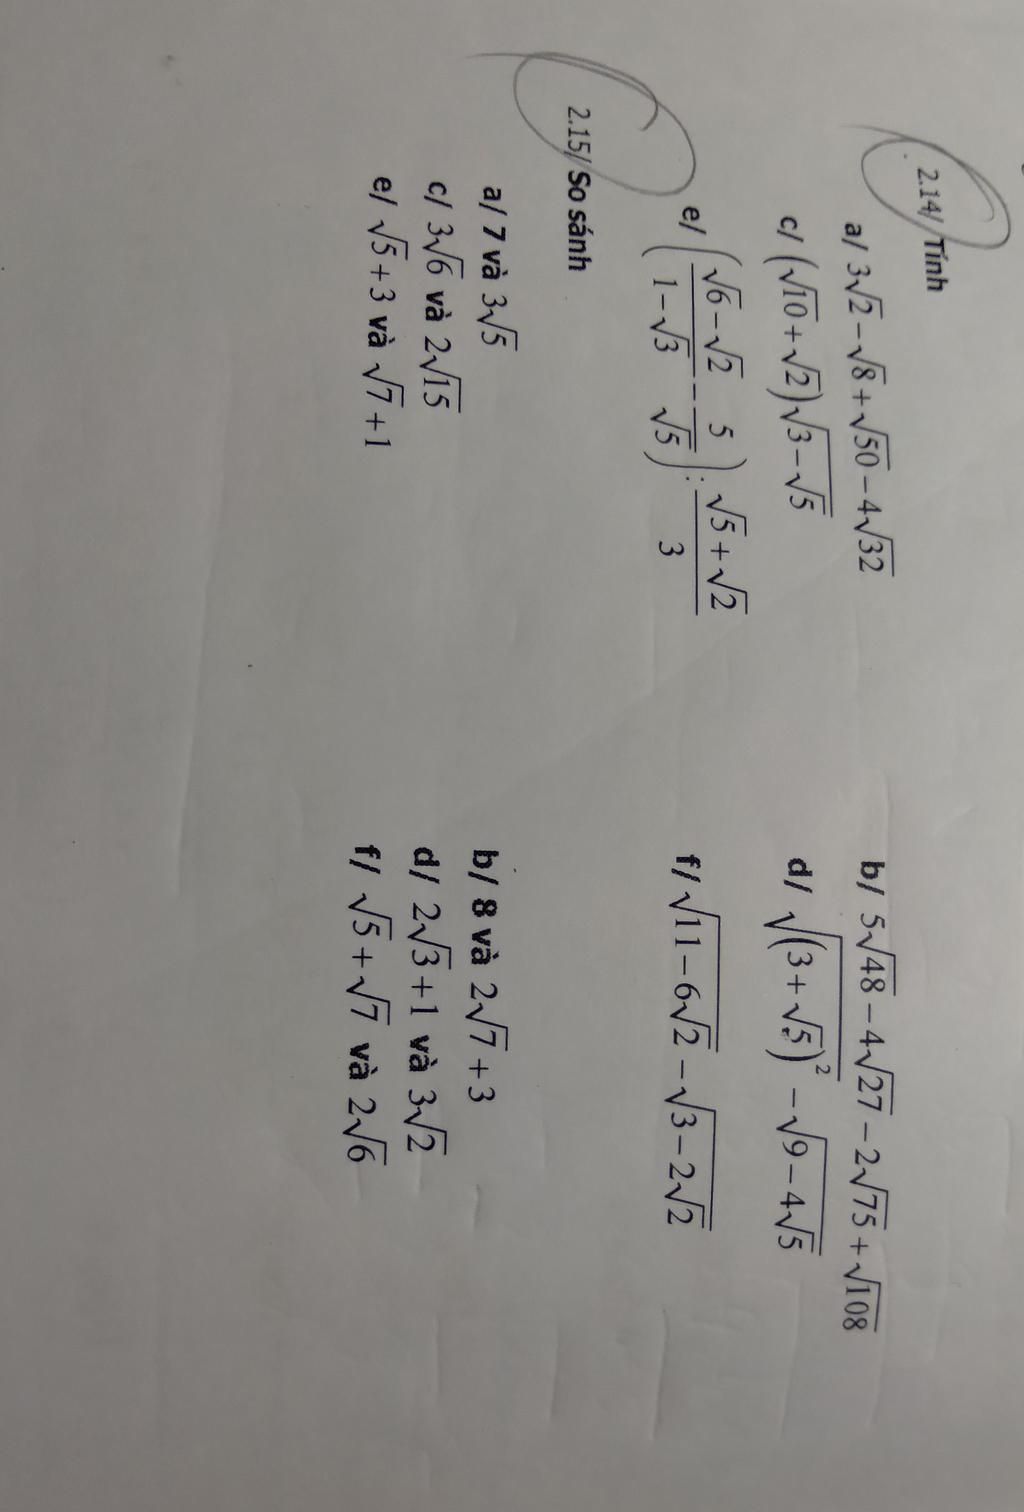 2.14/ Tính
a/ 3√2 − √8 + √50 − 4√32 b/ 5√48 − 4√27 − 2√75 + √108
c/ (√10 + √2)√(3 − √5) d/ √((3 + √5)²) − √(9 − 4√5)
e/ ((√6 − √2)/(1 − √3) − 5/√5) : (√5 + √2)/3 f/ √(11 − 6√2) − √(3 − 2√2)
2.15/ So sánh
a/ 7 và 3√5 b/ 8 và 2√7 + 3
c/ 3√6 và 2√15 d/ 2√3 + 1 và 3√2
e/ √5 + 3 và √7 + 1 f/ √5 + √7 và 2√6